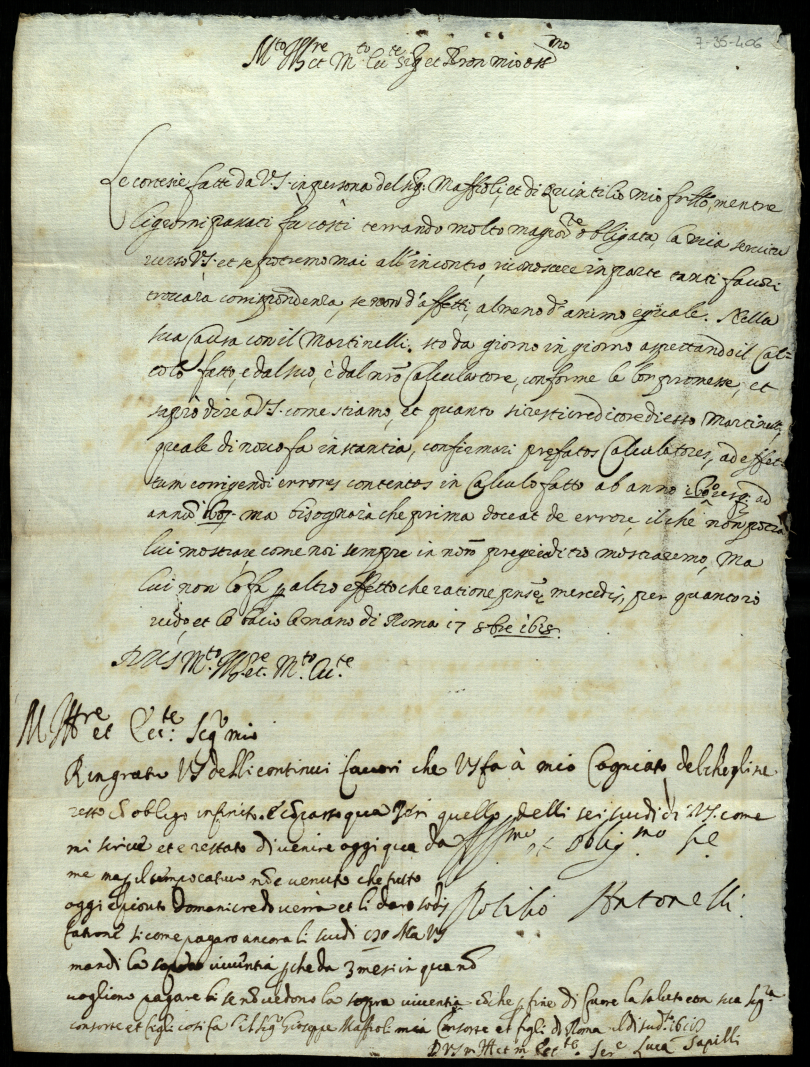 7-35-406
M.to Ill.re et M.to Ecc.te Sig.r et Pron mio oss.mo
Le cortesie fatte da V.S. in persona del sig.r Maffioli, et di Quintilio mio frello, mentre
li giorni passati fù costì terrando molto obligata, la mia servitu
verso V.S. et se potremo mai all'incontro, riconoscere in parte tanti favori
trovarà corrispondenza, se non d'effetti, almeno d'animo eguale. Nella
sua Causa con il Martinelli. sto da giorno in giorno aspettando il Cal=
colo fatto, e dal suo, è dal nrõ Calculatore, conforme le lor promesse, et
saprò dire a V.S. come stiamo, et quanto si resti creditore di esso Martinelli,
quale di novo fa instantia, confirmari prefatos Calculatores, ad effec=
tum corrigendi errores contentos in Calculo fatto ab anno usq. ad
annũ ma bisognarà che prima doceat de errore, il che non potrà
lui mostrare come noi sempre in nrõ pregiuditio mostraremo, Ma
lui non lo fà p altro effetto che ratione mercedis, per quanto io
vedo, et le bacio le mano di Roma 17 8bre 1618.
D V S M.to Ill.re et M.to Ecc.te
M Ill.re et Ecc.te Sig.r mio
Ringratio VS delli continui favori che VS fa à mio Cogniato del che gline
resto cõ obligo infinito. qua quello delli sei scudi di V.S. come
mi scrive et e restato di venire oggi qua da
Aff.mo et oblig.mo se.
me ma il tempo cativo nõ e venuto che tutto
oggi e piouto Domani credo verrà et li daro sodis
fatione si come pagaro ancora li scudi Ma VS
Antonelli.
mandi la sopra viventia p che da 3 mesi in qua nõ
vogliono pagare li se nõ vedono la sopra viventia cõ che p fine di cuore la saluto con sua sig.ra
consorte et figli cosi fa il sig.r Gioseppe Maffioli mia Consorte et figli di Roma 1618
D V S M Ill et m Ecc.te Ser.e Luca Sapilli